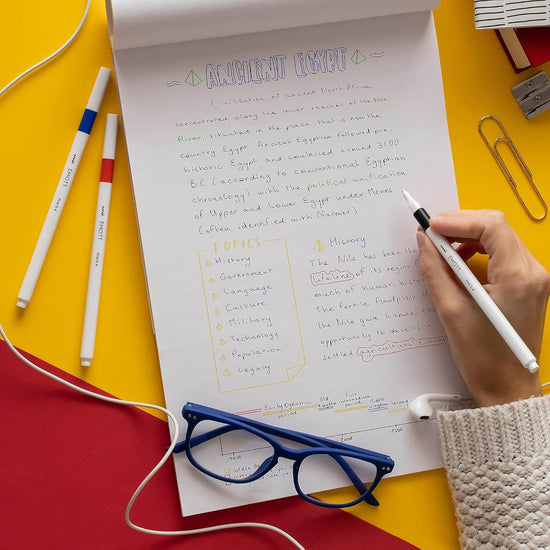 ANCIENT EGYPT
Civilization of ancient North Africa,
concentrated along the lower reaches of the Nile
River, situated in the place that is now the
country Egypt. Ancient Egyptian followed pre-
historic Egypt and coalesced around 3100
BC (according to conventional Egyptian
chronology) with the political unification
of Upper and Lower Egypt under Menes
(often identified with Narmer)
TOPICS
History
Government
Language
Culture
Military
Technology
Population
Legacy
History
The Nile has been the
lifeline of its region
much of human
The fertile floodplain
the Nile gave humans
opportunity to develop a
settled agricultural
Early Dynastic
period
Old
Middle
Second
uni EMOTT
uni EMOTT
uni EMOTT